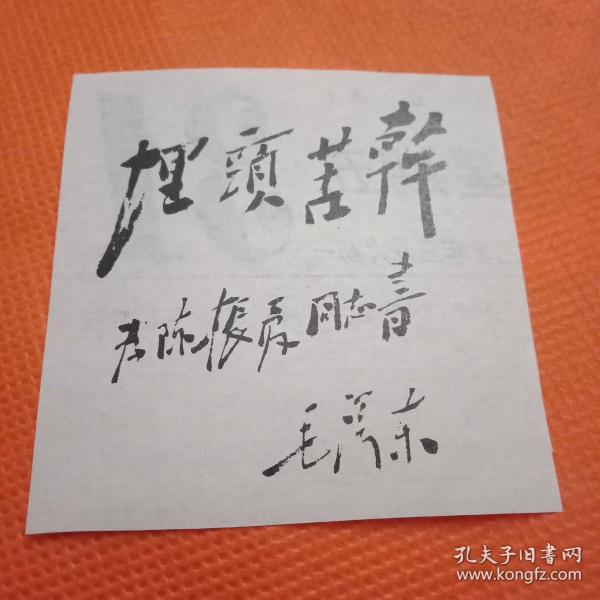 埋頭苦幹
為陳振夏同志書
毛澤东
孔夫子旧書网
www.kongfz.com